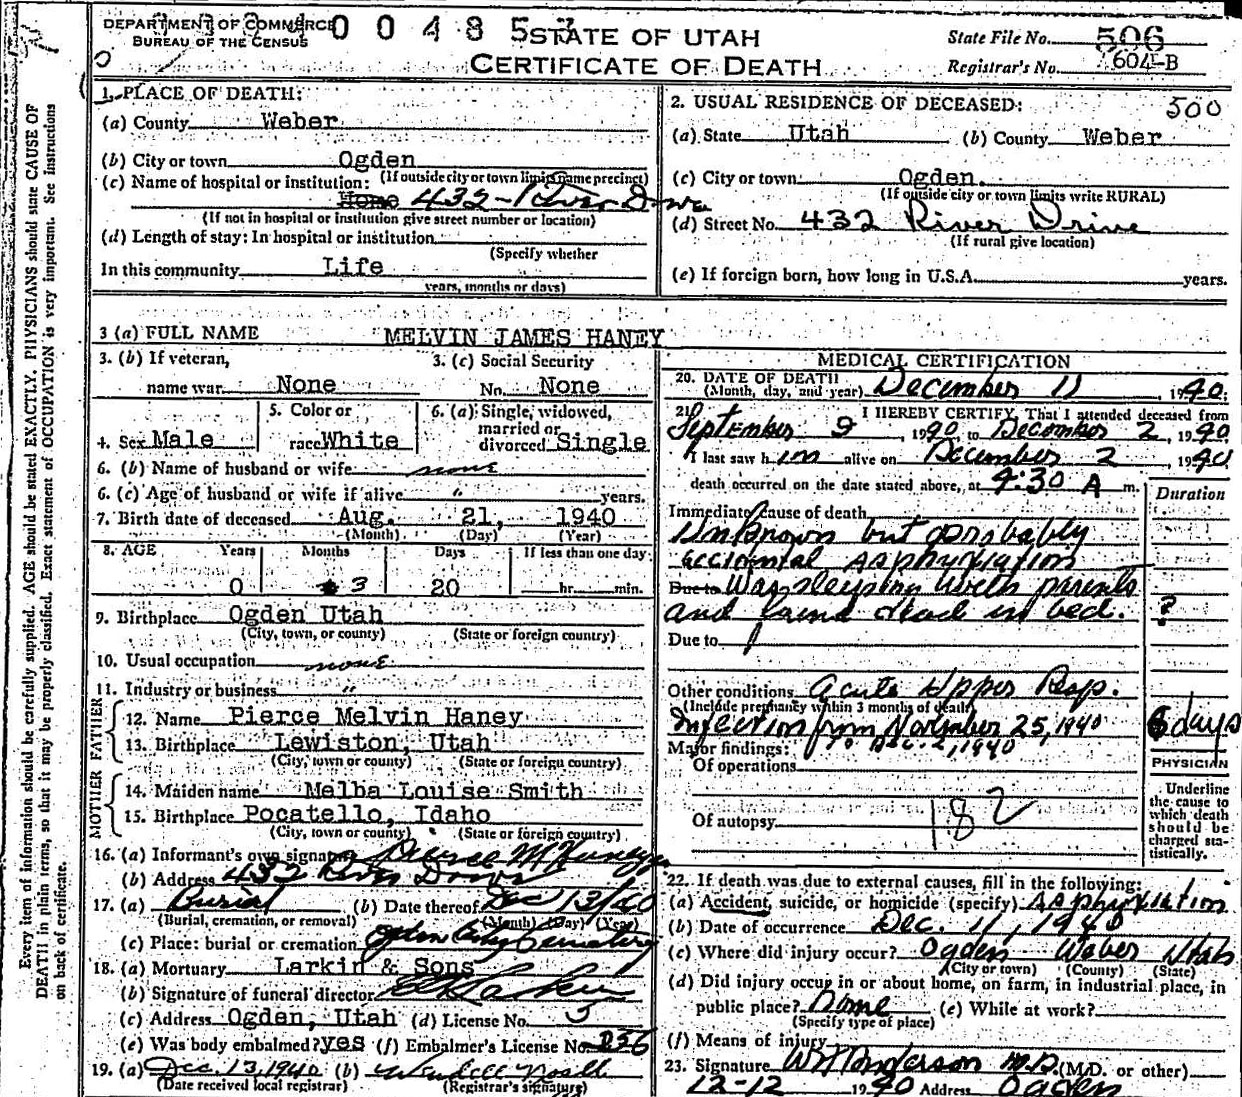 DEPARTMENT OF COMMERCE
BUREAU OF THE CENSUS
0 0 4 8 5
STATE OF UTAH
CERTIFICATE OF DEATH
State File No. 506
Registrar's No. 604-B
500
Every item of information should be carefully supplied. AGE should be stated EXACTLY. PHYSICIANS should state CAUSE OF
DEATH in plain terms, so that it may be properly classified. Exact statement of OCCUPATION is very important. See instructions
on back of certificate.
1. PLACE OF DEATH:
(a) County Weber
(b) City or town Ogden
(If outside city or town limits name precinct)
(c) Name of hospital or institution:
Home 432 - River Drive
(If not in hospital or institution give street number or location)
(d) Length of stay: In hospital or institution
(Specify whether
In this community Life
years, months or days)
2. USUAL RESIDENCE OF DECEASED:
(a) State Utah (b) County Weber
(c) City or town Ogden.
(If outside city or town limits write RURAL)
(d) Street No. 432 River Drive
(If rural give location)
(e) If foreign born, how long in U.S.A. years.
3 (a) FULL NAME MELVIN JAMES HANEY
3. (b) If veteran,
name war None
3. (c) Social Security
No. None
4. Sex Male
5. Color or
race White
6. (a) Single, widowed,
married or
divorced Single
6. (b) Name of husband or wife none
6. (c) Age of husband or wife if alive " years.
7. Birth date of deceased Aug. 21, 1940
(Month) (Day) (Year)
8. AGE Years Months Days If less than one day
0 3 20 hr. min.
9. Birthplace Ogden Utah
(City, town, or county) (State or foreign country)
10. Usual occupation none
11. Industry or business "
FATHER
12. Name Pierce Melvin Haney
13. Birthplace Lewiston, Utah
(City, town or county) (State or foreign country)
MOTHER
14. Maiden name Melba Louise Smith
15. Birthplace Pocatello, Idaho
(City, town or county) (State or foreign country)
16. (a) Informant's own signature Pierce M Haney
(b) Address 432 River Drive
17. (a) Burial (b) Date thereof Dec 13/40
(Burial, cremation, or removal) (Month) (Day) (Year)
(c) Place: burial or cremation Ogden City Cemetery
18. (a) Mortuary Larkin & Sons
(b) Signature of funeral director
(c) Address Ogden, Utah (d) License No. 3
(e) Was body embalmed? yes (f) Embalmer's License No. 256
19. (a) Dec. 13, 1940 (b)
(Date received local registrar) (Registrar's signature)
MEDICAL CERTIFICATION
20. DATE OF DEATH
(Month, day, and year) December 11, 1940;
21. I HEREBY CERTIFY, That I attended deceased from
September 9, 1940 to December 2, 1940
I last saw him alive on December 2, 1940
death occurred on the date stated above, at 4:30 A m.
Duration
Immediate cause of death
Unknown but probably
accidental asphyxiation
Due to Was sleeping with parents
and found dead in bed. ?
Due to
Other conditions Acute Upper Resp.
(Include pregnancy within 3 months of death)
Infection from November 25, 1940 6 days
to Dec. 2, 1940
Major findings:
Of operations
Of autopsy
182
PHYSICIAN
Underline
the cause to
which death
should be
charged sta-
tistically.
22. If death was due to external causes, fill in the following:
(a) Accident, suicide, or homicide (specify) Asphyxiation
(b) Date of occurrence Dec. 11, 1940
(c) Where did injury occur? Ogden Weber Utah
(City or town) (County) (State)
(d) Did injury occur in or about home, on farm, in industrial place, in
public place? Home (e) While at work?
(Specify type of place)
(f) Means of injury
23. Signature W H Anderson M.D. (M.D. or other)
12-12 1940 Address Ogden